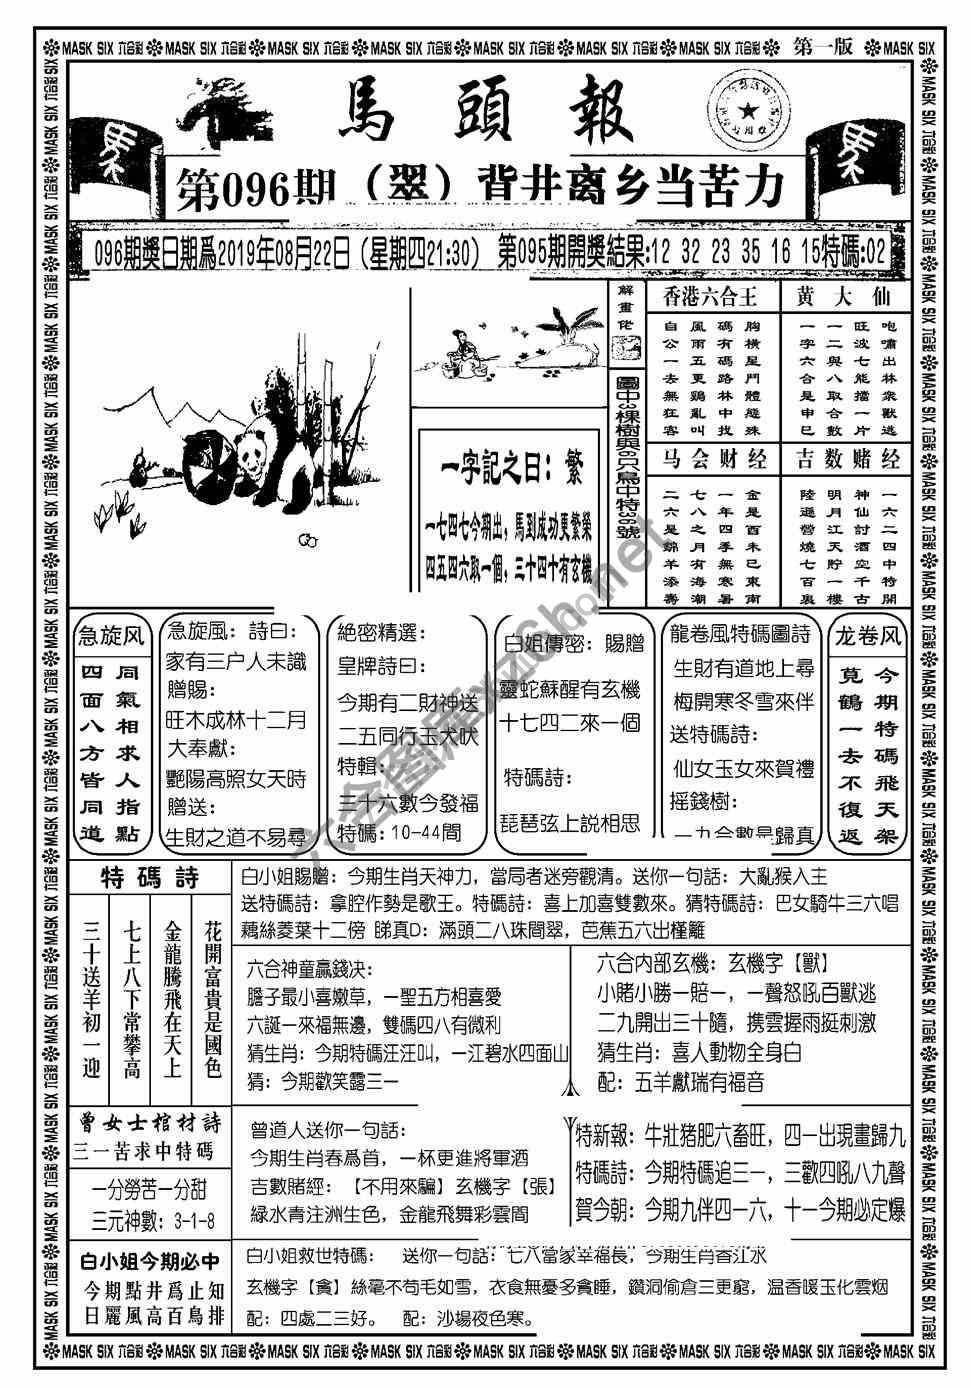 MASK SIX 六合彩 MASK SIX 六合彩 MASK SIX 六合彩 MASK SIX 六合彩 MASK SIX 六合彩 MASK SIX 六合彩 MASK SIX 六合彩 第一版 MASK SIX
馬頭報
第096期（翠）背井离乡当苦力
096期獎日期爲2019年08月22日（星期四21:30） 第095期開獎結果:12 32 23 35 16 15特碼:02
解畫佬
圖中3棵樹與6只鳥中特36號
一字記之曰：繁
一七四七今期出，馬到成功更繁榮
四五四六取一個，三十四十有玄機
香港六合王
自公一去無狂客
風雨五更鷄亂叫
碼有碼路林中找
胸橫星鬥體縫殊
黄大仙
一字六合是申巳
一二與八取合數
旺波七能擋一片
咆嘯出林衆獸逃
马会财经
二六是錦羊添壽
七八之月有海潮
一年四季無寒暑
金是酉未巳東南
吉数赌经
陸遜營燒七百裏
明月江天貯一樓
神仙討酒空千古
一六二四中特開
急旋风
四面八方皆同道
同氣相求人指點
急旋風：詩曰：
家有三户人未識
贈賜：
旺木成林十二月
大奉獻：
艷陽高照女天時
贈送：
生財之道不易尋
絶密精選：
皇牌詩曰：
今期有二財神送
二五同行玉犬吠
特輯：
三十六數今發福
特碼：10-44間
白姐傳密：賜贈
靈蛇蘇醒有玄機
十七四二來一個
特碼詩：
琵琶弦上説相思
龍卷风特碼圖詩
生財有道地上尋
梅開寒冬雪來伴
送特碼詩：
仙女玉女來賀禮
摇錢樹：
一九合數是歸真
龙卷风
莧鶴一去不復返
今期特碼飛天架
特碼詩
三十送羊初一迎
七上八下常攀高
金龍騰飛在天上
花開富貴是國色
白小姐賜贈：今期生肖天神力，當局者迷旁觀清。送你一句話：大亂猴入主
送特碼詩：拿腔作勢是歌王。特碼詩：喜上加喜雙數來。猜特碼詩：巴女騎牛三六唱
藕絲菱葉十二傍 睇真D：滿頭二八珠間翠，芭蕉五六出槿籬
六合神童贏錢决：
膽子最小喜嫩草，一聖五方相喜愛
六誕一來福無邊，雙碼四八有微利
猜生肖：今期特碼汪汪叫，一江碧水四面山
猜：今期歡笑露三一
六合内部玄機：玄機字【獸】
小賭小勝一賠一，一聲怒吼百獸逃
二九開出三十隨，携雲握雨挺刺激
猜生肖：喜人動物全身白
配：五羊獻瑞有福音
曾女士棺材詩
三一苦求中特碼
一分勞苦一分甜
三元神數：3-1-8
曾道人送你一句話：
今期生肖春爲首，一杯更進將軍酒
吉數賭經：【不用來騙】玄機字【張】
緑水青注洲生色，金龍飛舞彩雲間
特新報：牛壯猪肥六畜旺，四一出現畫歸九
特碼詩：今期特碼追三一，三歡四吼八九聲
賀今朝：今期九伴四一六，十一今期必定爆
白小姐今期必中
今期點井爲止知
日麗風高百鳥排
白小姐救世特碼： 送你一句話：七八當家幸福長，今期生肖香江水
玄機字【貪】絲毫不苟毛如雪，衣食無憂多貪睡，鑽洞偷倉三更窮，温香暖玉化雲烟
配：四處二三好。 配：沙場夜色寒。
MASK SIX 六合彩 MASK SIX 六合彩 MASK SIX 六合彩 MASK SIX 六合彩 MASK SIX 六合彩 MASK SIX 六合彩 MASK SIX 六合彩 MASK SIX 六合彩 MASK SIX